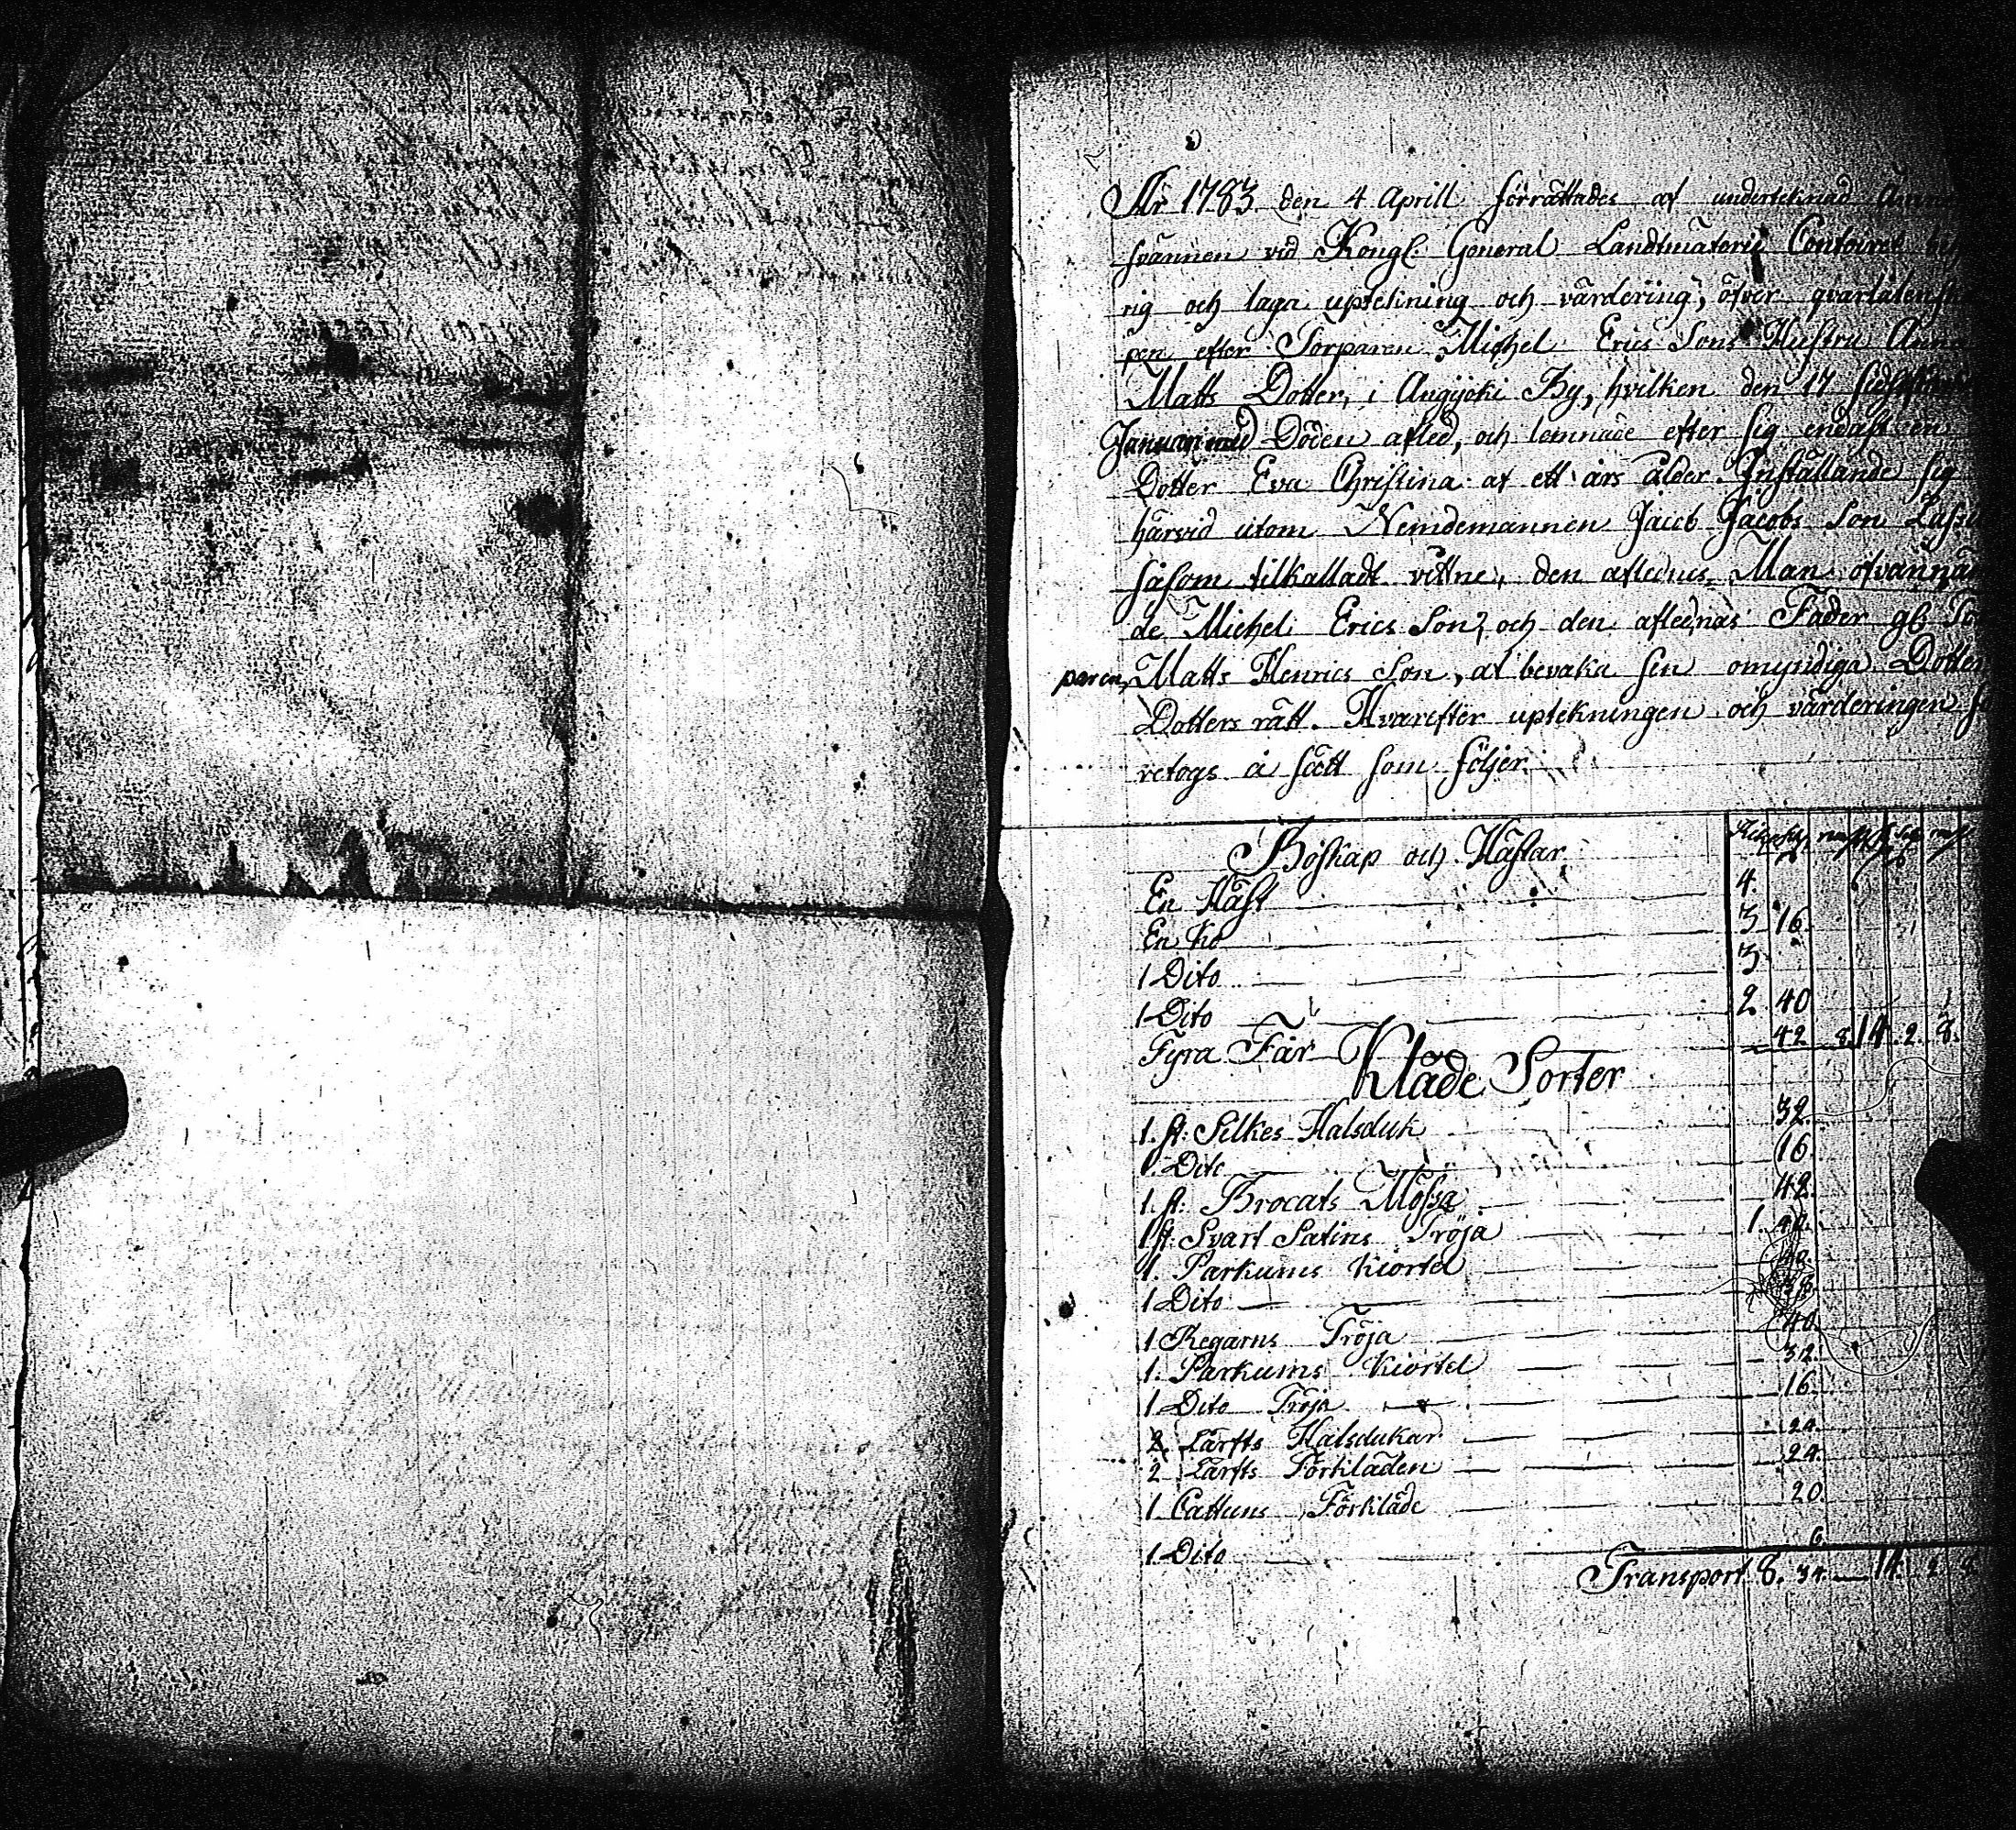 År 1783 den 4 Aprill förrättades af undertecknad
svännen vid Kongl. General Landtmäterie Contoiret
rig och laga upteckning och värdering, öfver qvarlåtenska
pen efter Torparen Michel Erics Sons Hustru Anna
Matts Dotter, i Angijoki By, hvilken den 17 sidstl
Januari med Döden afled, och lemnade efter sig endast en
Dotter Eva Christina af ett års ålder. Inställande sig
härvid utom Nemdemannen Jacob Jacobs Son
såsom tilkalladt vittne, den aflednes Man ofvannäm
de Michel Erics Son, och den aflednas Fader gl. Tor
paren, Matts Henrics Son, at bevaka sin omyndiga Dotter
Dotters rätt. Hvarefter uptekningen och värderingen fö
retogs å sätt som följer
Boskap och Hästar
En Häst 4.
En Ko 3 16.
1 Dito 3
1 Dito 2 40
Fyra Får 42 8. 14. 2. 8.
Kläde Sorter
1. st: Silkes Halsduk 32.
1. Dito 16.
1. st: Brocats Mössa 42.
1 st: Svart Satins Tröja 1.
1. Parkums Kiortel
1 Dito
1 Regarns Tröja 40
1. Parkums Kiortel 32.
1 Dito Tröja 16.
2. Lärfts Halsdukar 24.
2 Lärfts Förkläden 24.
1 Cattuns Förkläde 20.
1. Dito 6.
Transport 8. 34. — 14. 2. 8